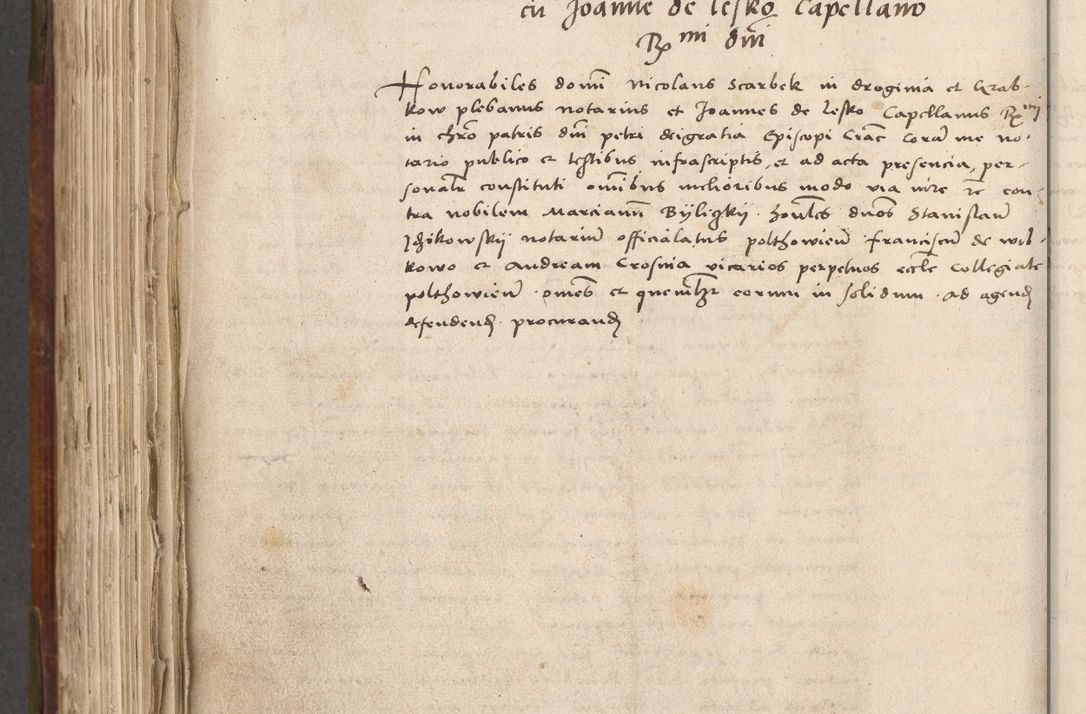 cū Joanne de lesko Capellano
Rmi dni
Honorabiles domi Nicolaus Scarbek in droginia et Grab-
kow plebanus notarius et Joannes de lesko Capellanus Rmi
in chro patris dni petri deigratia Episcopi Crac Corā me no-
tario publico et testibus infrascriptis, et ad acta presencia, per-
sonalr constituti omībus melioribus modo via iure re con-
tra nobilem Marcianū Byligkij. honles duos Stanislaū
notariū officialatus polthowień franciscū de wil-
kowo et Andream Crosnia vicarios perpetuos eccle Collegiate
polthowień. omēs et quemlibet eorum in solidum. ad agend
defendend. procurand